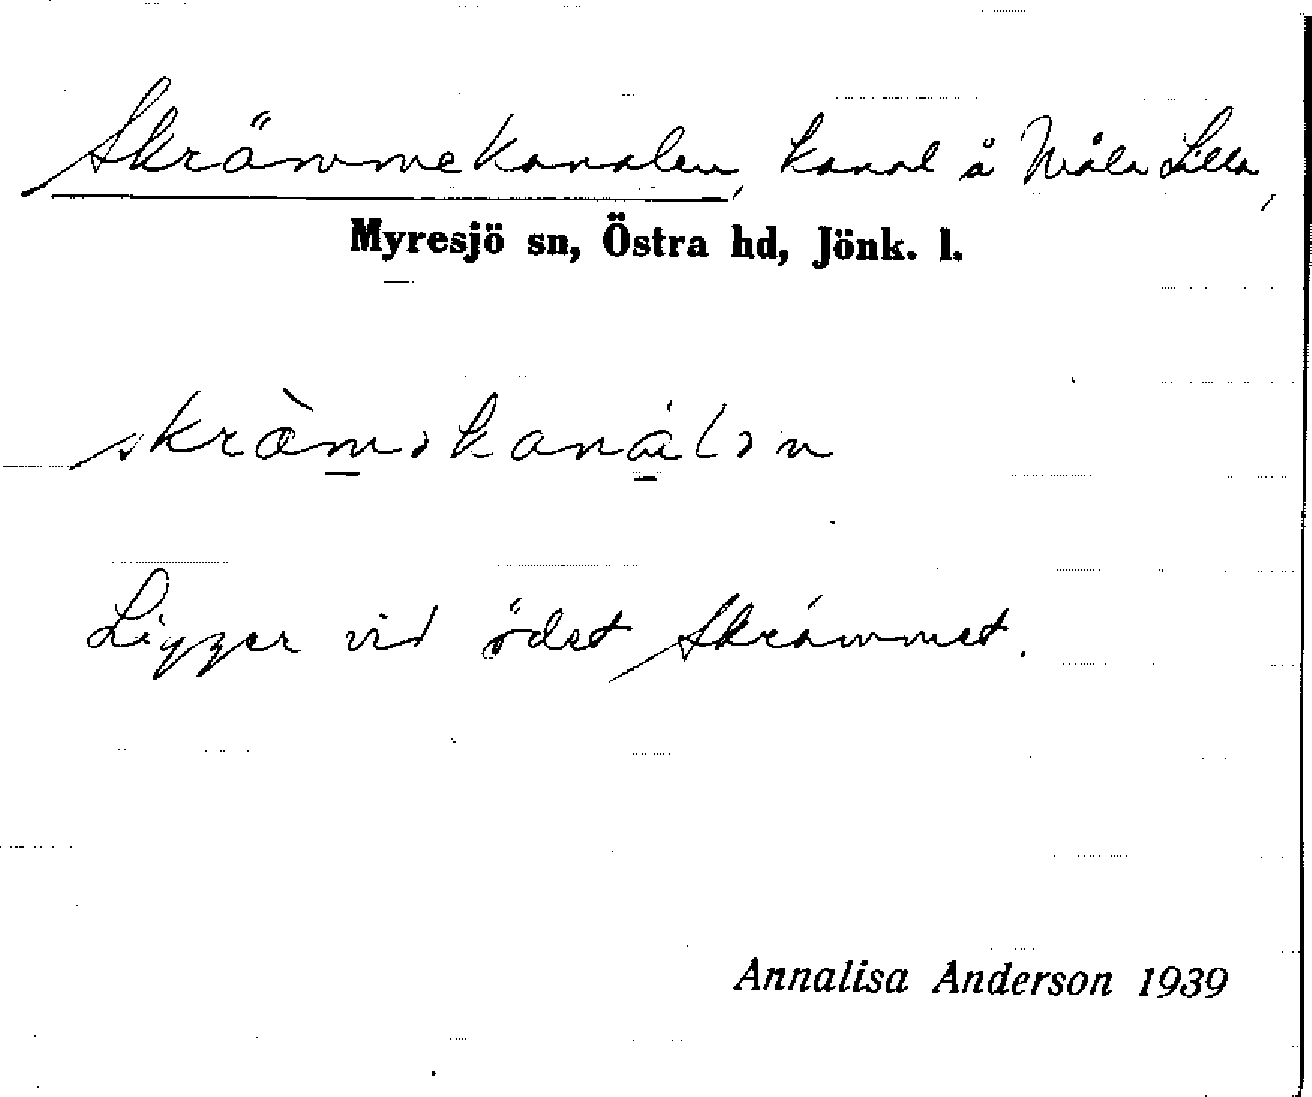 Skrämmekanalen, kanal å Måla Lilla,
Myresjö sn, Östra hd, Jönk. l.
skræ̀məkanálən
Ligger vid ödet Skrämmet.
Annalisa Anderson 1939